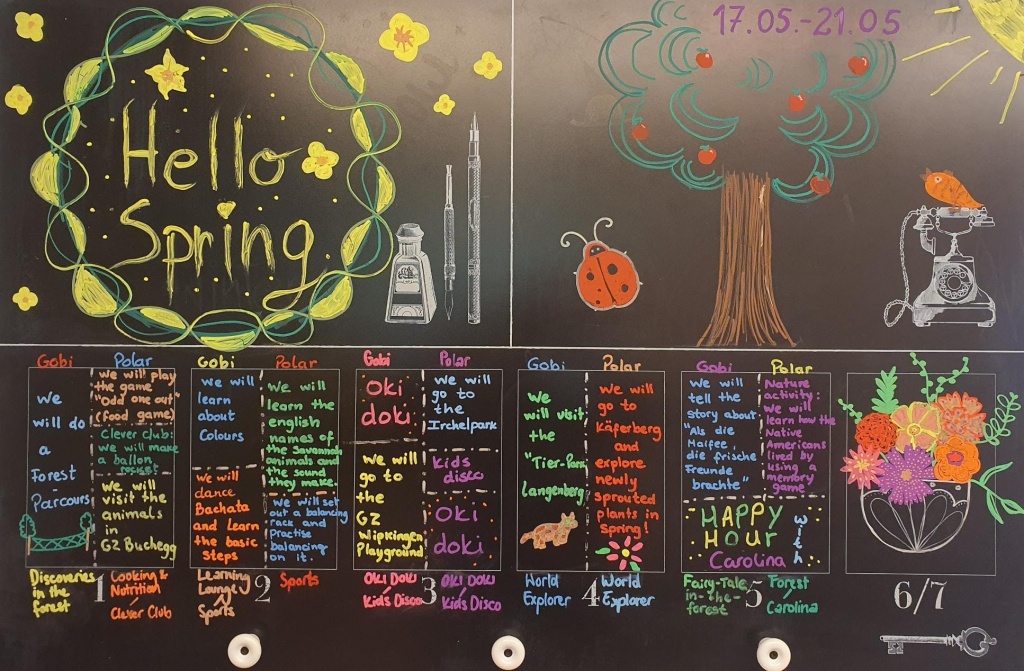 Hello
Spring
17.05.-21.05
Gobi
we
will do
a
Forest
Parcours
Discoveries
in the
forest
1
Polar
we will play
the game
"Odd one out"
(food game)
Clever club:
we will make
a ballon
rocket
we will
visit the
animals
in
GZ Buchegg
Cooking &
Nutrition
Clever Club
Gobi
we will
learn
about
Colours
we will
dance
Bachata
and learn
the basic
steps
Learning
Lounge
Sports
2
Polar
we will
learn the
english
names of
the Savannah
animals and
the sound
they make.
we will set
out a balancing
rack and
Practise
balancing
on it.
Sports
Gobi
Oki
doki
we will
go to
the
GZ
Wipkingen
Playground
Oki Doki
Kid's Disco
3
Polar
we will
go to
the
Irchelpark
kids
disco
Oki
doki
Oki Doki
Kid's Disco
Gobi
we
will visit
the
"Tier-Park
Langenberg"
World
Explorer
4
Polar
we will
go to
Käferberg
and
explore
newly
sprouted
plants in
Spring!
World
Explorer
Gobi
we will
tell the
story about
"Als die
Maifee
die frische
Freunde
brachte"
Polar
Nature
activity:
we will
learn how the
Native
Americans
lived by
using a
memory
game
HAPPY
HOUR
with
Carolina
Fairy-Tale
in-the-
forest
5
Forest
Carolina
6/7